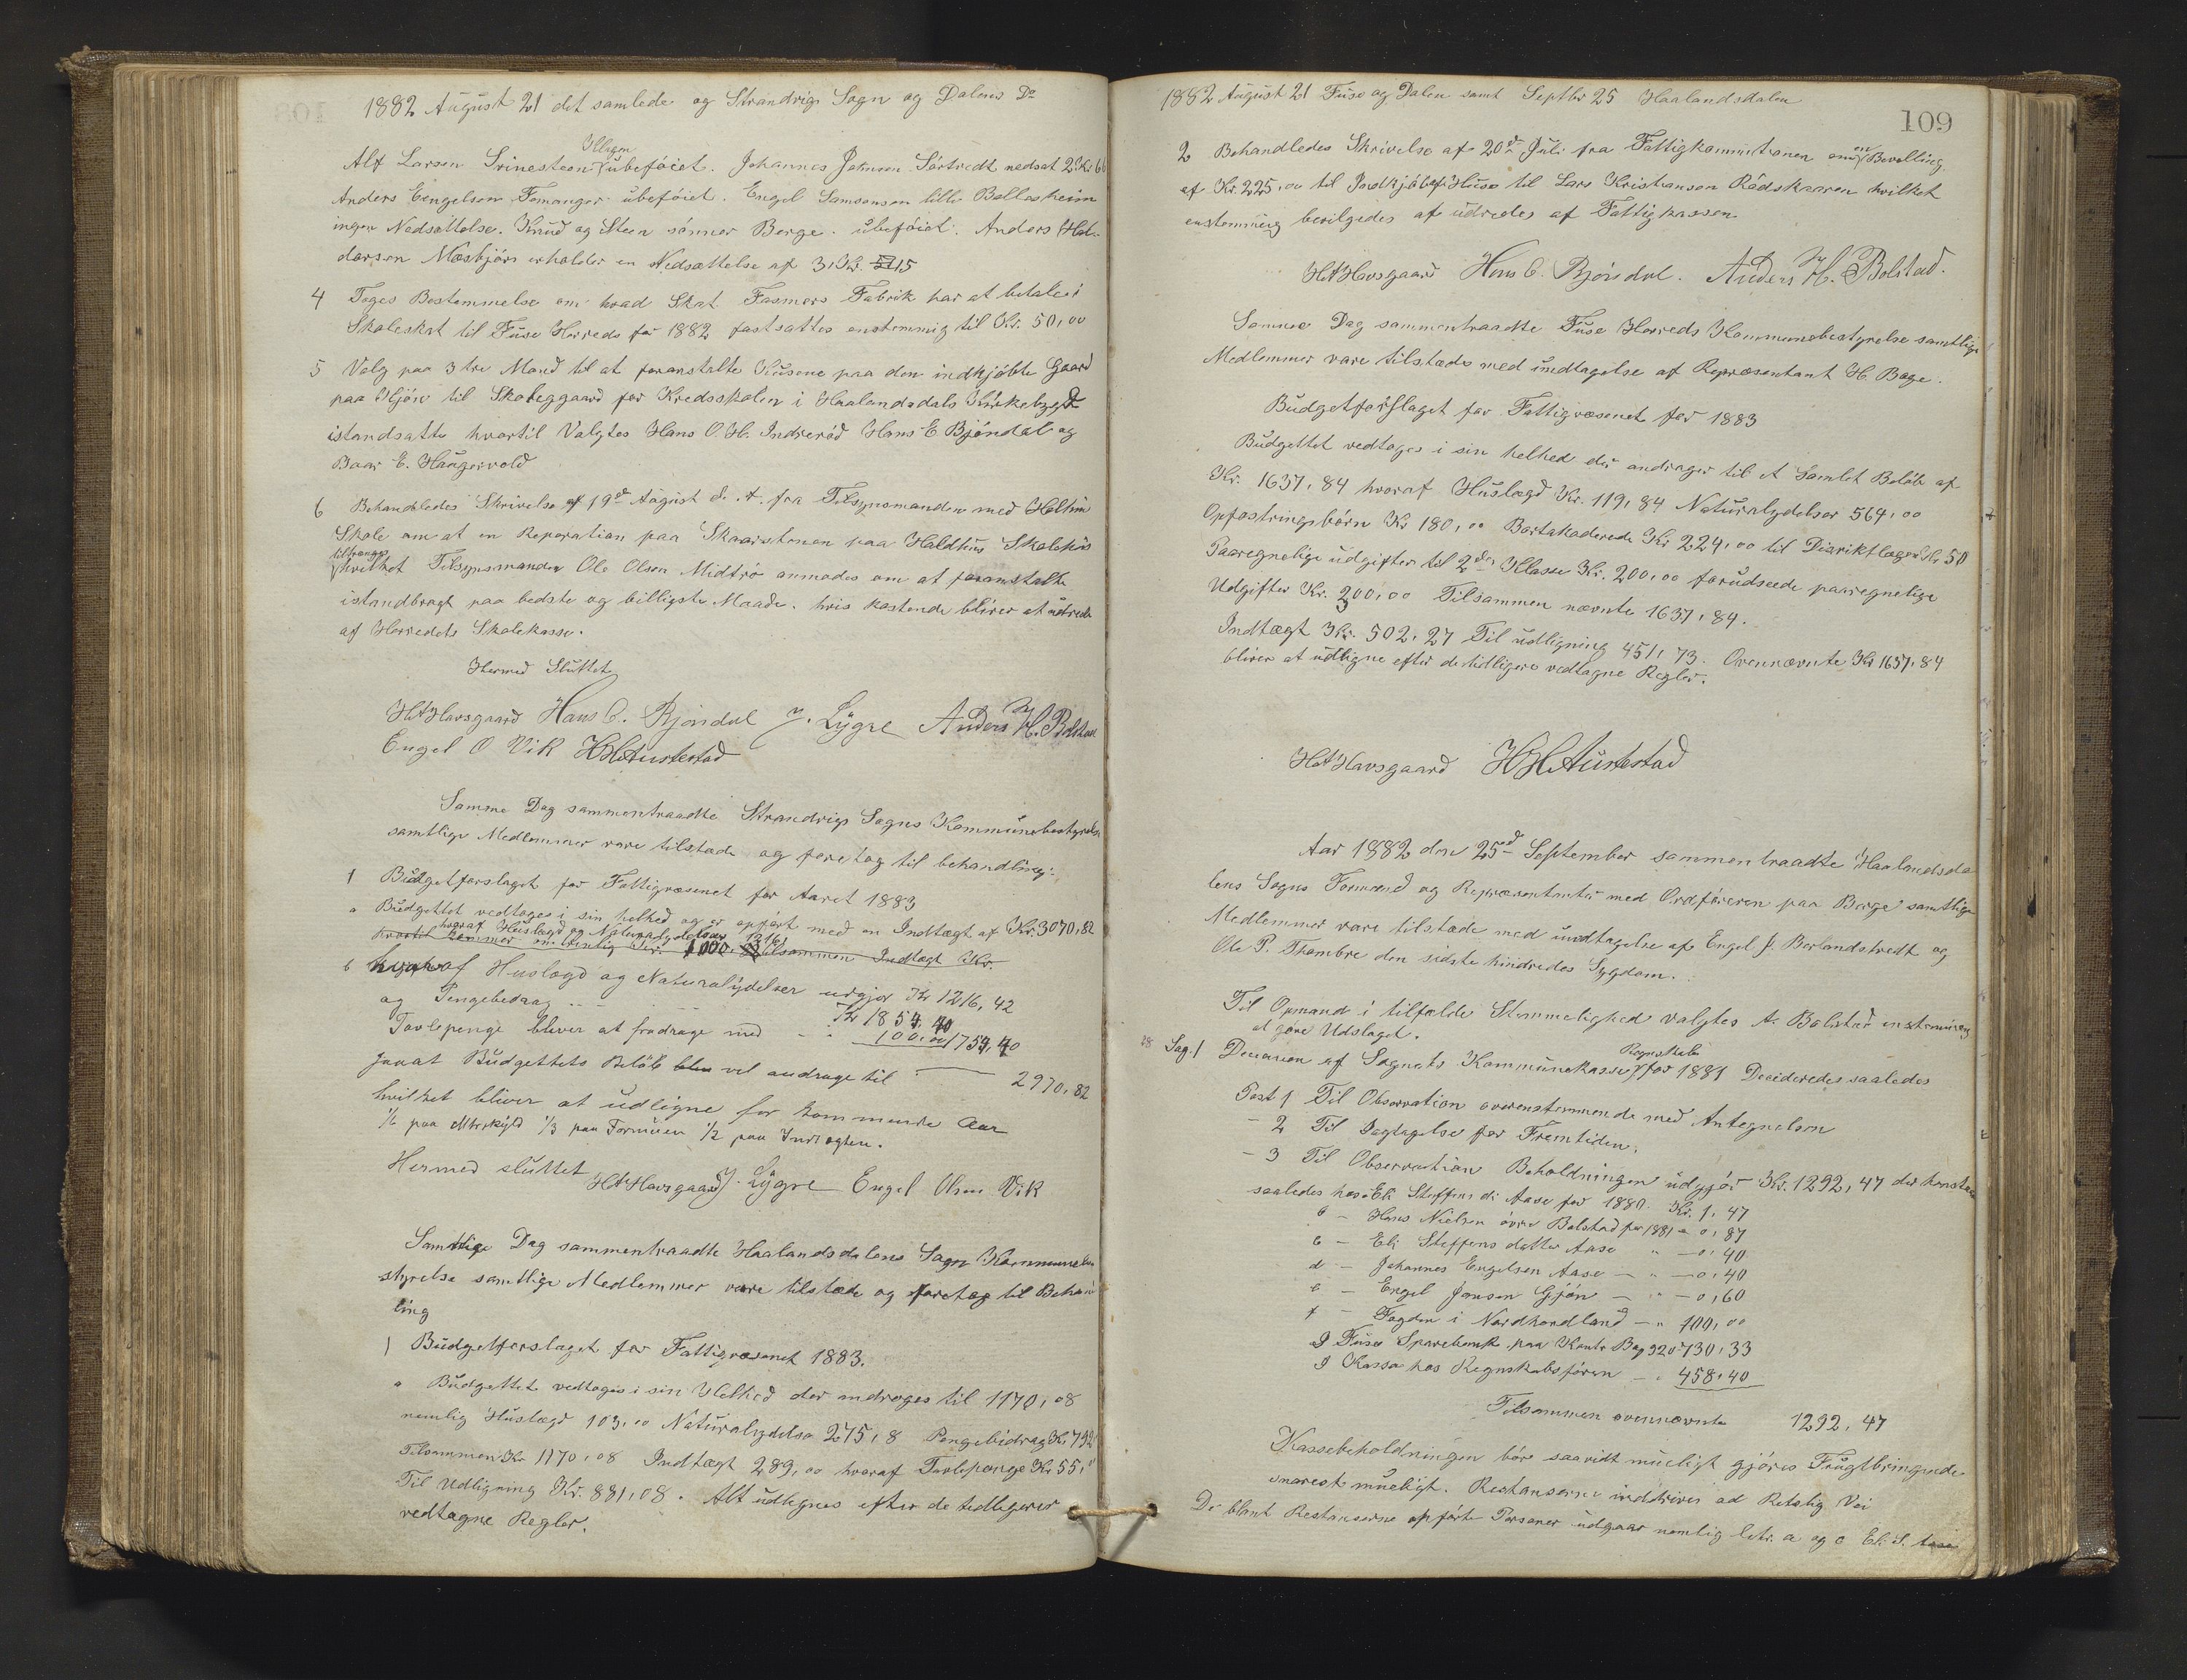 1882 August 21 det samlede og Strandvig Sogn og Dalens Do
Illigen
Alf Larsen Svinesteen ubeføiet. Johannes Johnsen Sørtvedt nedsat 2 Kr. 66
Anders Engelsen Femanger ubeføiet. Engel Samsonsen lille Bollesheim
ingen Nedsættelse. Knud og Steen sønner Berge. ubeføiet. Anders Hal-
dorsen Mæsbjørn erholder en Nedsættelse af 3, Kr. 15
4 Toges Bestemmelse om hvad Skat Fasmers Fabrik har at betale i
Skoleskat til Fuse Herreds for 1882 fastsattes enstemmig til Kr. 50,00
5 Valg paa 3 tre Mand til at foranstalte Husene paa den indkjøbte Gaard
paa Gjøn til Skoleggaard for Kredsskolen i Haalandsdals Kirkebygd
istandsatte hvortil Valgtes Hans O. H. Indrerød Hans E Bjøndal og
Baar E. Haugervold
6 Behandledes Skrivelse af 19de August d. A. fra Tilsynsmanden med Holthus
Skole om at en Reparation paa Skaarstenen paa Holdhus Skolehus
tiltrenges
hvilket Tilsynsmanden Ole Olsen Midtrø anmodes om at foranstalte
istandbragt paa bedste og billigste Maade. hvis kostende bliver at udrede
af Herredets Skolekasse.
Hermed Sluttet
HAHavsgaard Hans C. Bjøndal J. Lygre Anders H. Bolstad
Engel O Vik HHAustestad
Samme Dag sammentraadte Strandvigs Sogns Kommunebestyrelse
samtlige Medlemmer vare tilstæde og foretog til behandling:
1 Budgetforslaget for Fattigvæsenet for Aaret 1883
a Budgettet vedtoges i sin helhed og er opført med en Indtægt af Kr. 3070,82
hvoraf Huslægd og Naturalydelser 1216,
hvortil kommer nemlig Kr. 1000, tilsammen Indtægt Kr.
b hvoraf Huslægd og Naturalydelser udgjør Kr 1216,42
og Pengebedrag .. - Kr 1854,40
Tavlepenge bliver at fradrage med - " 100,00 1754,40
saaat Budgettets Beløb vel andrage til - 2970,82
hvilket bliver at udligne for kommende Aar
1/6 paa Mtrskyld 1/3 paa Formuen 1/2 paa Indtægten.
Hermed sluttet HAHavsgaard J. Lygre Engel Olsen Vik
Samtlige Dag sammentraadte Haalandsdalens Sogn Kommunebe
styrelse samtlige Medlemmer vare tilstæde og foretog til Behand
ling
1 Budgetforslaget for Fattigvæsenet 1883.
a Budgettet vedtoges i sin Helhed der androges til 1170,08
nemlig Huslægd 103,00 Naturalydelse 275,8 Pengebidrag Kr. 792
Tilsammen Kr 1170,08 Indtægt 289,00 hvoraf Tavlepenge Kr 55,"
Til Udligning Kr. 881,08. Alt udlignes efter de tedligerer
vedtagne Regler.
1882 August 21 Fuse og Dalen samt Septbr 25 Haalandsdalen
109
2 Behandledes Skrivelse af 20de Juli fra Fattigkommitionen om en Bevilling
af Kr. 225,00 til Indkjøb af Huse til Lars Kristianson Rødskaaren hvilket
enstemmig bevilgedes af udredes af Fattigkassen
HAHavsgaard Hans C. Bjøndal. Anders H. Bolstad.
Samme Dag sammentraadte Fuse Herreds Kommunebestyrelse samtlige
Medlemmer vare tilstæde med undtagelse af Repræsentant H. Bage.
Budgetforslaget for Fattigvæsenet for 1883
Budgettet vedtoges i sin helhed der andrager til et Samlet Beløb af
Kr. 1637,84 hvoraf Huslægd Kr. 119,84 Naturalydelser 564,00
Opfostringsbørn Kr 180,00 Bortakoderede Kr 224,00 til Distriktlægen Kr. 50
Paaregnelige udgifter til 2den Klasse Kr. 200,00 forudseede paaregnelige
Udgifter Kr. 300,00 Tilsammen nævnte 1637,84.
Indtægt Kr. 502,27 Til udligning 451,73. Ovennævnte Kr 1637,84
bliver at udligne efter de tidligere vedtagne Regler.
HAHavsgaard HHAustestad
Aar 1882 den 25de September sammentraadte Haalandsda
lens Sogns Formænd og Repræsentanter med Ordføreren paa Berge samtlige
Medlemmer vare tilstæde med undtagelse af Engel J. Berlandstvedt og
Ole P. Træmbre den sidste hindredes Sygdom.
Til Opmand i tilfælde Stemmelighed valgtes A. Bolstad enstemmig
at gøre Udslaget.
Regnskab
Sag. 1 Decision af Sognets Kommunekasse for 1881 Decideredes saaledes
Post 1 Til Observation overenstemmende med Antegnelsen
- 2 Til Iagtagelse for Fremtiden.
- 3 Til Observation Beholdningen udgjør Kr. 1292,47 der henstaar
saaledes hos a Eli Steffens di Aase for 1880. Kr. 1,47
b - Hans Nielsen øvre Bolstad for 1881 - 0,87
c - Eli Steffens datter Aase " - 0,40
d - Johannes Engelsen Aase - " - 0,40
e - Engel Jonsen Gjøn - " - 0,60
f - Fogden i Nordhordland - " 100,00
g Fuse Sparebank paa Konto Bog 920 730,33
g Kassa hos Regnskabsføren - " 458,40
Tilsammen ovennævnte 1292,47
Kassebeholdningen bør saavidt mueligt gjøres Frugtbringende
snarest mueligt. Restanserne inddriver ad Retslig Vei
De blant Restanserne opførte Personer udgaar nemlig letr. a og c Eli S. Aase